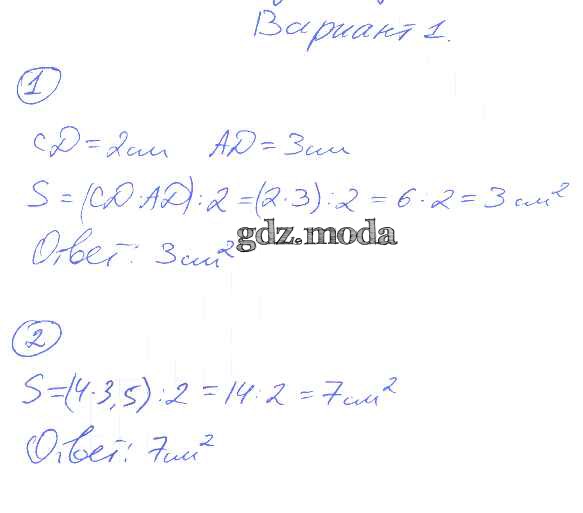 Вариант 1.
1
CD = 2 см AD = 3 см
S = (CD · AD) : 2 = (2 · 3) : 2 = 6 : 2 = 3 см²
Ответ: 3 см²
gdz.moda
2
S = (4 · 3,5) : 2 = 14 : 2 = 7 см²
Ответ: 7 см²